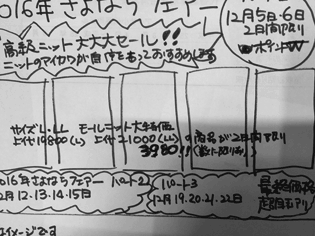 2016年さよならフェアー
12月5日・6日
2日間限り
WポイントW
高級ニット大大大セール!!
ニットのアイカワが自信をもっておすすめします
サイズL・LL モールニット大特価
上代19800(L) 上代21000(LL)の商品が2日間限り
3980!!(数に限りあり)
2016年さよならフェアー パート2
12月12.13.14.15日
パート3
12月19.20.21.22日
最終価格
イメージです